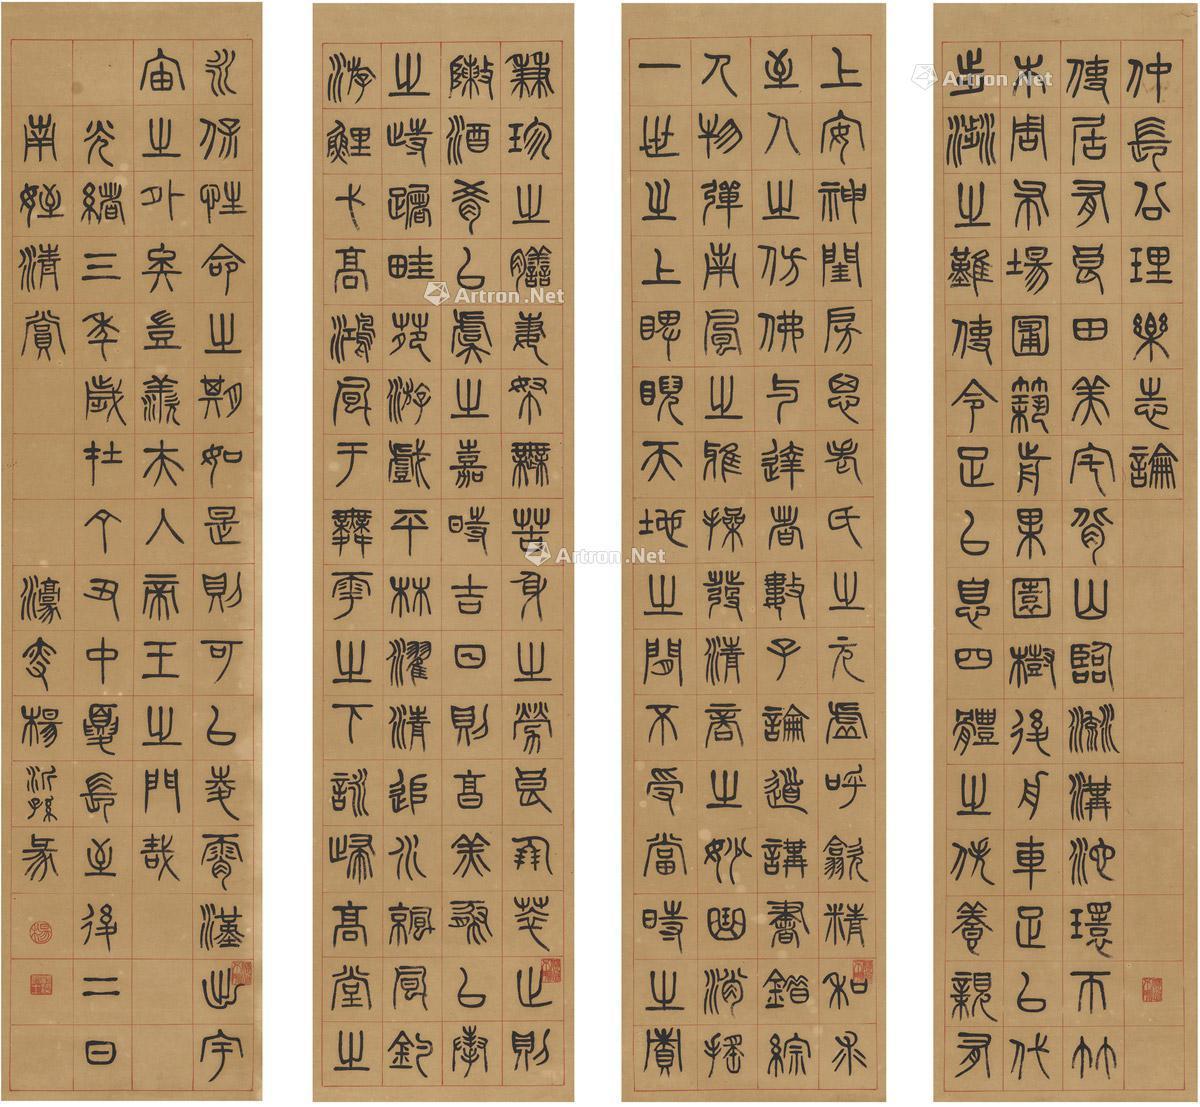 仲長公理樂志論
使居有良田美宅背山臨流溝池環帀竹
木周布場圃築前果園樹後舟車足以代
步涉之難使令足以息四體之役養親有
上安神閨房思老氏之元虛呼歙精和求
至人之仿佛与達者數子論道講書錯綜
人物彈南風之雅操發清商之妙曲消搖
一世之上睥睨天地之閒不受當時之責
兼珍之膳妻孥無苦身之勞良朋萃止則
陳酒肴以虞之嘉時吉日則亯羔豚以奉
之峙躇畦苑游戲平林濯清追水涼風釣
游鯉弋高鴻風于舞雩之下詠歸高堂之
永保性命之期如是則可以凌霄漢出宇
宙之外矣豈羨夫入帝王之門哉
光緒三年歲在丁丑中夏長至後二日
南姪清賞 濠叟楊沂孫篆
Artron.Net
Artron.Net
Artron.Net